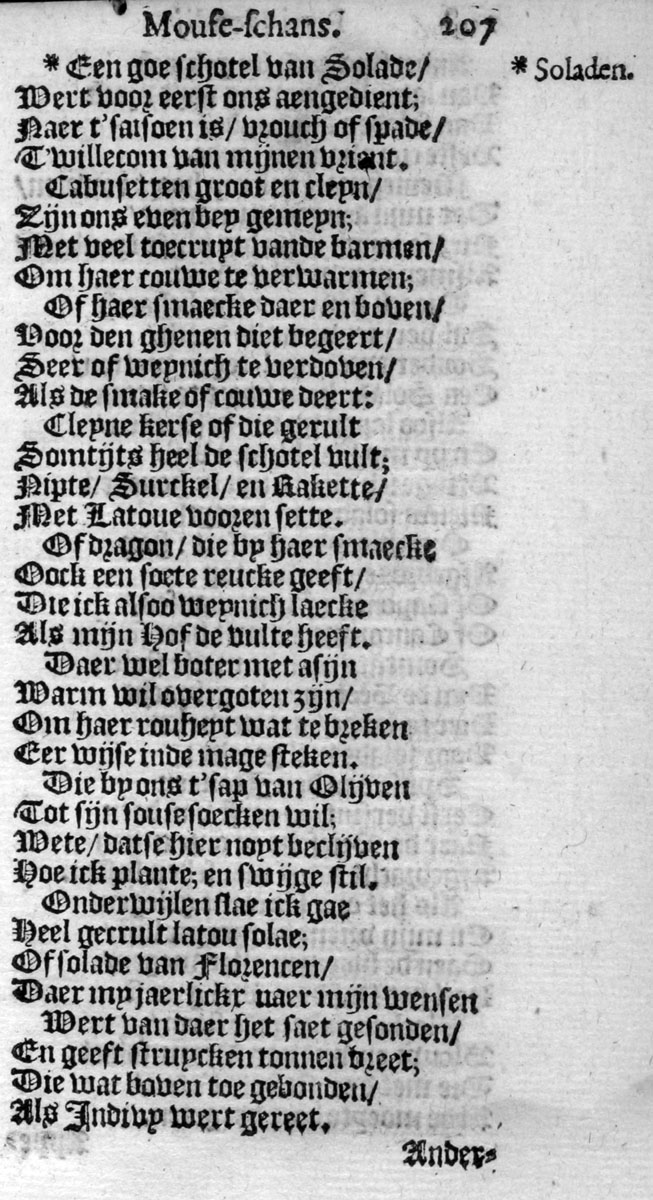 Mouse-schans. 207
* Een goe schotel van Solade/ * Soladen.
Wert voor eerst ons aengedient;
Naer t'saisoen is/ vrouch of spade/
T'willecom van mijnen vriant.
Cabusetten groot en cleyn/
Zijn ons even bey gemeyn;
Met veel toecruyt vande barmen/
Om haer couwe te verwarmen;
Of haer smaecke daer en boven/
Voor den ghenen diet begeert/
Seer of weynich te verdoven/
Als de smake of couwe deert:
Cleyne kerse of die gerult
Somtijts heel de schotel vult;
Nipte/ Surckel/ en Rakette/
Met Latoue vooren sette.
Of dragon/ die by haer smaecke
Oock een soete reucke geeft/
Die ick alsoo weynich laecke
Als mijn Hof de vulte heeft.
Daer wel boter met asijn
Warm wil overgoten zijn/
Om haer rouheyt wat te breken
Eer wijse inde mage steken.
Die by ons t'sap van Olijven
Tot sijn souse soecken wil;
Wete/ datse hier noyt beclijven
Hoe ick plante; en swijge stil.
Onderwijlen slae ick gae
Heel gecrult latou solae;
Of solade van Florencen/
Daer my jaerlickx naer mijn wensen
Wert van daer het saet gesonden/
En geeft struycken tonnen breet;
Die wat boven toe gebonden/
Als Indivy wert gereet.
Ander-